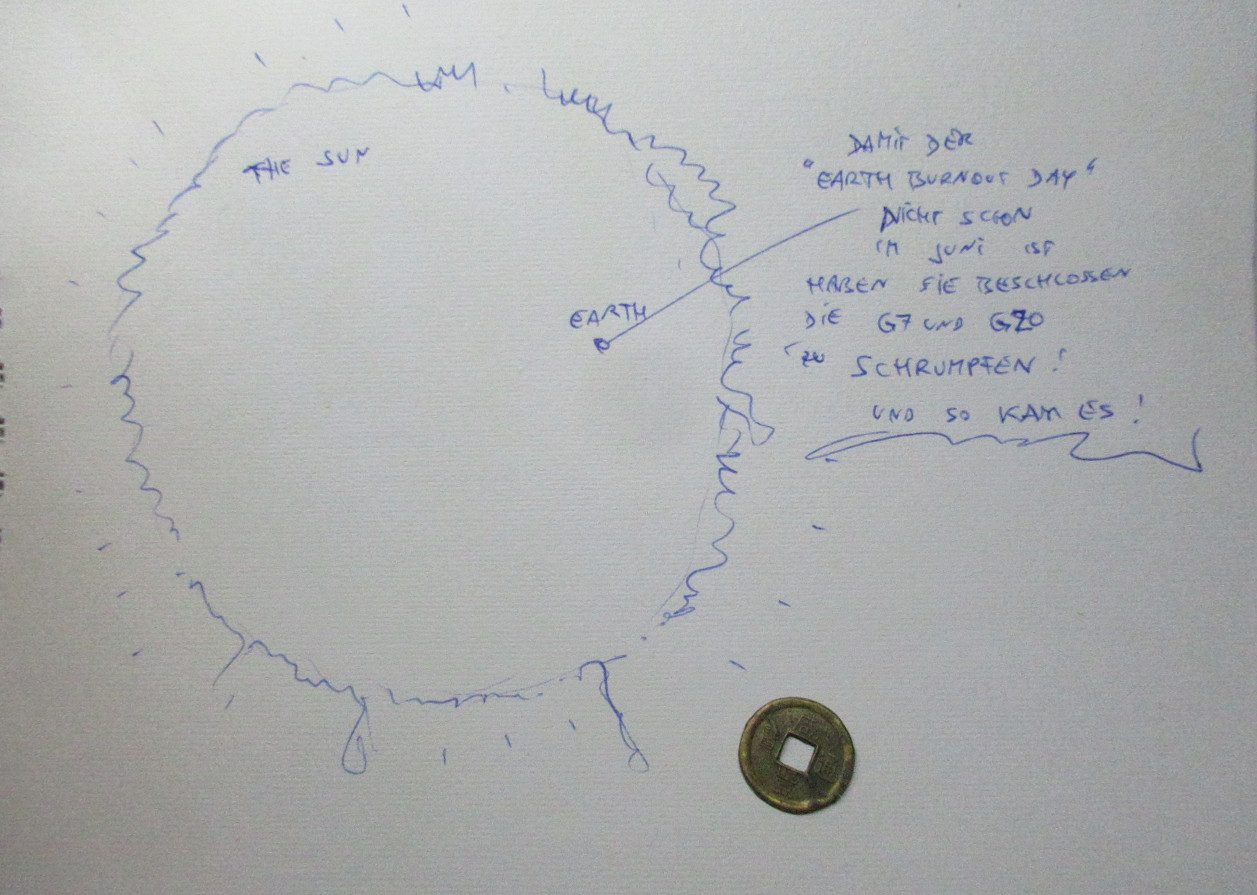 THE SUN
EARTH
DAMIT DER
"EARTH BURNOUT DAY"
NICHT SCHON
IM JUNI IST
HABEN SIE BESCHLOSSEN
DIE G7 UND G20
ZU SCHRUMPFEN!
UND SO KAM ES!